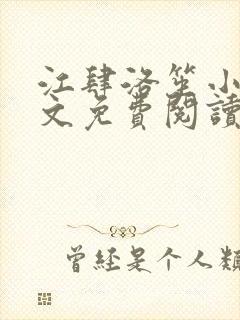 江肆洛笙小
文免費閱讀
曾经是个人類